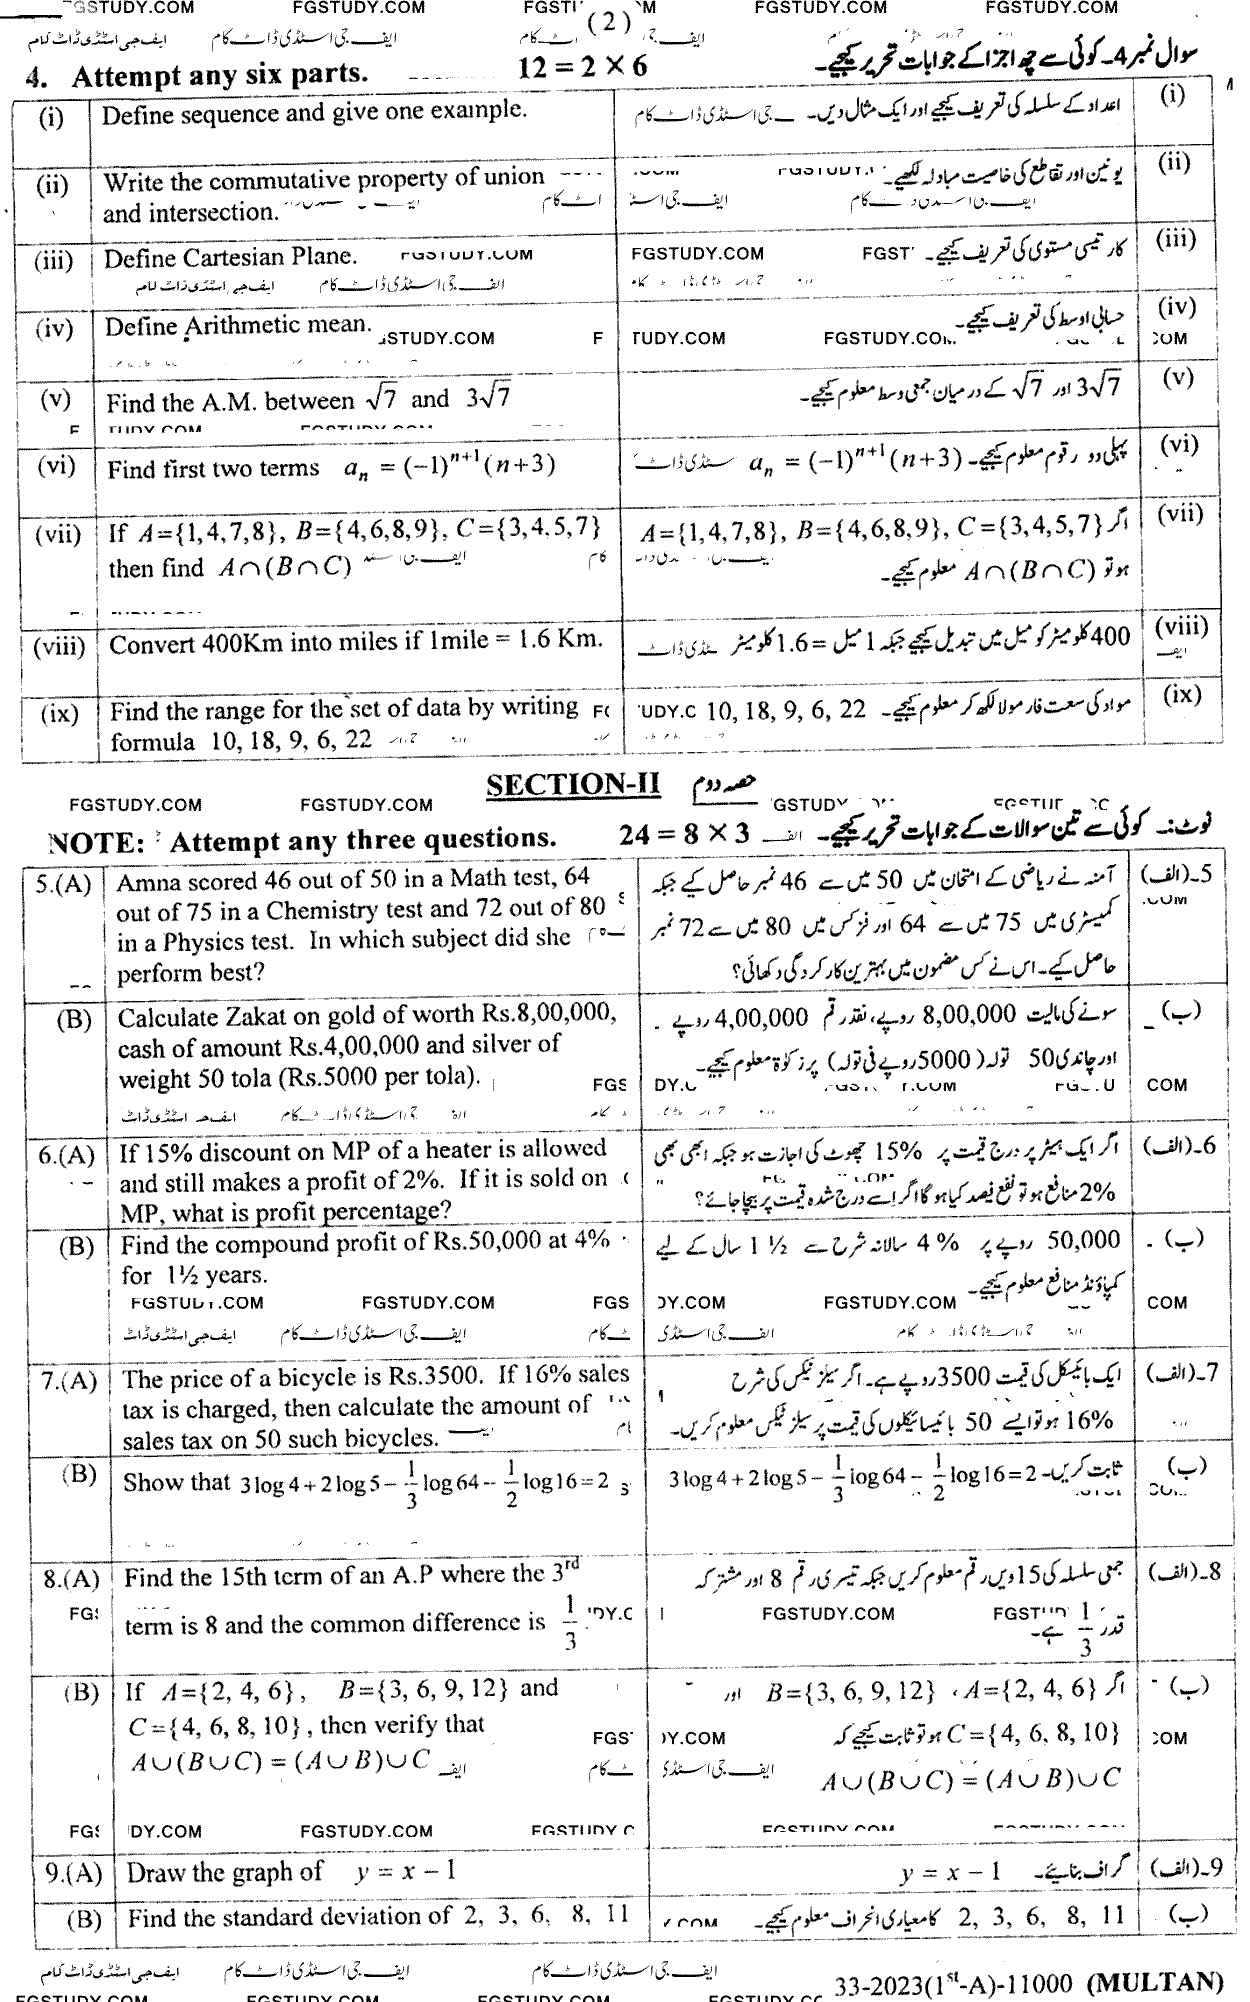 FGSTUDY.COM FGSTUDY.COM FGSTUDY.COM FGSTUDY.COM
(2)
ایف جی اسٹڈی ڈاٹ کام ایف جی اسٹڈی ڈاٹ کام
4. Attempt any six parts. 12 = 2 × 6 سوال نمبر 4۔ کوئی سے چھ اجزا کے جوابات تحریر کیجیے۔
(i) Define sequence and give one example. اعداد کے سلسلہ کی تعریف کیجیے اور ایک مثال دیں۔ (i)
(ii) Write the commutative property of union یونین اور تقاطع کی خاصیت مبادلہ لکھیے۔ (ii)
and intersection.
(iii) Define Cartesian Plane. FGSTUDY.COM FGSTUDY.COM کارتیسی مستوی کی تعریف کیجیے۔ (iii)
(iv) Define Arithmetic mean. حسابی اوسط کی تعریف کیجیے۔ (iv)
(v) Find the A.M. between √7 and 3√7 √7 اور 3√7 کے درمیان جمعی وسط معلوم کیجیے۔ (v)
(vi) Find first two terms aₙ = (−1)ⁿ⁺¹(n+3) پہلی دو رقوم معلوم کیجیے۔ aₙ = (−1)ⁿ⁺¹(n+3) (vi)
(vii) If A={1,4,7,8}, B={4,6,8,9}, C={3,4,5,7} اگر A={1,4,7,8}, B={4,6,8,9}, C={3,4,5,7} (vii)
then find A∩(B∩C) ہو تو A∩(B∩C) معلوم کیجیے۔
(viii) Convert 400Km into miles if 1mile = 1.6 Km. 400 کلومیٹر کو میل میں تبدیل کیجیے جبکہ 1 میل = 1.6 کلومیٹر (viii)
(ix) Find the range for the set of data by writing مواد کی سعت فارمولا لکھ کر معلوم کیجیے۔ 10, 18, 9, 6, 22 (ix)
formula 10, 18, 9, 6, 22
SECTION-II حصہ دوم
FGSTUDY.COM FGSTUDY.COM
NOTE: Attempt any three questions. 24 = 8 × 3 نوٹ:۔ کوئی سے تین سوالات کے جوابات تحریر کیجیے۔
5.(A) Amna scored 46 out of 50 in a Math test, 64 آمنہ نے ریاضی کے امتحان میں 50 میں سے 46 نمبر حاصل کیے جبکہ 5۔(الف)
out of 75 in a Chemistry test and 72 out of 80 کیمسٹری میں 75 میں سے 64 اور فزکس میں 80 میں سے 72 نمبر
in a Physics test. In which subject did she حاصل کیے۔ اس نے کس مضمون میں بہترین کارکردگی دکھائی؟
perform best?
(B) Calculate Zakat on gold of worth Rs.8,00,000, سونے کی مالیت 8,00,000 روپے، نقد رقم 4,00,000 روپے (ب)
cash of amount Rs.4,00,000 and silver of اور چاندی 50 تولہ (5000 روپے فی تولہ) پر زکوٰۃ معلوم کیجیے۔
weight 50 tola (Rs.5000 per tola).
6.(A) If 15% discount on MP of a heater is allowed اگر ایک ہیٹر پر درج قیمت پر 15% چھوٹ کی اجازت ہو جبکہ ابھی بھی 6۔(الف)
and still makes a profit of 2%. If it is sold on 2% منافع ہو تو نفع فیصد کیا ہو گا اگر اسے درج شدہ قیمت پر بیچا جائے؟
MP, what is profit percentage?
(B) Find the compound profit of Rs.50,000 at 4% 50,000 روپے پر 4% سالانہ شرح سے 1 ½ سال کے لیے (ب)
for 1½ years. کمپاؤنڈ منافع معلوم کیجیے۔
FGSTUDY.COM FGSTUDY.COM FGSTUDY.COM
ایف جی اسٹڈی ڈاٹ ایف جی اسٹڈی ڈاٹ کام
7.(A) The price of a bicycle is Rs.3500. If 16% sales ایک بائیسکل کی قیمت 3500 روپے ہے۔ اگر سیلز ٹیکس کی شرح 7۔(الف)
tax is charged, then calculate the amount of 16% ہو تو ایسے 50 بائیسائیکلوں کی قیمت پر سیلز ٹیکس معلوم کریں۔
sales tax on 50 such bicycles.
(B) Show that 3log4+2log5−1/3 log64−1/2 log16=2 ثابت کریں۔ 3log4+2log5−1/3 log64−1/2 log16=2 (ب)
8.(A) Find the 15th term of an A.P where the 3rd جمعی سلسلہ کی 15 ویں رقم معلوم کریں جبکہ تیسری رقم 8 اور مشترکہ 8۔(الف)
term is 8 and the common difference is 1/3. قدر 1/3 ہے۔
(B) If A={2, 4, 6}, B={3, 6, 9, 12} and اگر A={2, 4, 6}، B={3, 6, 9, 12} اور (ب)
C={4, 6, 8, 10}, then verify that C={4, 6, 8, 10} ہو تو ثابت کیجیے کہ
A∪(B∪C) = (A∪B)∪C A∪(B∪C) = (A∪B)∪C
FGSTUDY.COM
9.(A) Draw the graph of y = x − 1 گراف بنائیے۔ y = x − 1 9۔(الف)
(B) Find the standard deviation of 2, 3, 6, 8, 11 2, 3, 6, 8, 11 کا معیاری انحراف معلوم کیجیے۔ (ب)
ایف جی اسٹڈی ڈاٹ کام ایف جی اسٹڈی ڈاٹ کام ایف جی اسٹڈی ڈاٹ کام
33-2023(1st-A)-11000 (MULTAN)